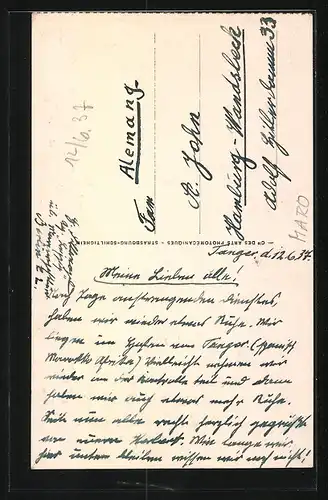 12/6.37
Alemang.
Frau
A. John
Hamburg-Wandsbeck
Adolf Hitler Damm 33
MARO
CIE DES ARTS PHOTOMECANIQUES - STRASBOURG-SCHILTIGHEIM
Tanger, d. 12.6.37.
Meine Lieben alle!
Tage anstrengenden Dienstes,
haben wir wieder etwas Ruhe. Wir
liegen im Hafen von Tanger. (span.
Marokko Afrika) Vielleicht nehmen wir
wieder an der Kontrolle teil und dann
haben wir auch etwas mehr Ruhe.
Seid nun alle recht herzlich gegrüßt
von eurem Herbert. Wie lange wir
hier unten bleiben wissen wir noch nicht!